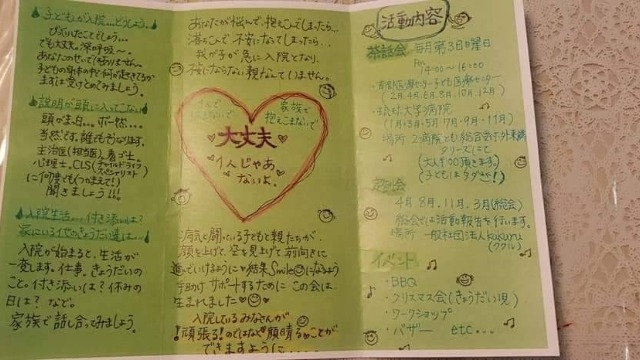 子どもが入院…どうしよう..
びっくりしたことでしょう…
でも大丈夫。深呼吸〜。
あなたのせいではありません。
まずは受けとめてみましょう。
説明が頭に入ってこない
頭が真白…ボー然…
当然です。誰でもなります。
主治医(担当医)、看ゴ士、
心理士、CLS(チャイルドライフスペシャリスト)
に何度でも(つかまえて!)
聞きましょう!!!
入院生活…付き添いは?
家にいる他のきょうだい達は…
入院が始まると、生活が
一変します。仕事、きょうだいの
こと。付き添いは?休みの
日は?など。
家族で話し合ってみましょう。
あなたが悩んで、抱えこんでしまったら…
落ちこんで不安になってしまったら…
我が子が急に入院となり、
不安にならない親なんていません。
家族で
抱えこまないで
大丈夫
1人じゃあ
ないよ。
病気と闘っている子どもと親たちが、
顔を上げて、空を見上げて前向きに
進んでいけるように…
結果Smileになるよう
手助け サポートするために この会は
生まれました
入院しているみなさんが
"頑張る!"のではなく"顔晴る"ことが
できますように…
活動内容
茶話会 毎月第3日曜日
PM 14:00〜16:00
・南部医療センター子ども医療センター
(2月、4月、6月、8月、10月、12月)
・琉球大学病院
(1月、3月、5月、7月、9月、11月)
(子どもはタダだヨ!)
定例会
4月、8月、11月、3月(総会)
総会では活動報告を行います。
場所 一般社団法人kukuru
(ククル)
イベント
・BBQ
・クリスマス会(きょうだい児)
・ワークショップ
・バザー etc...